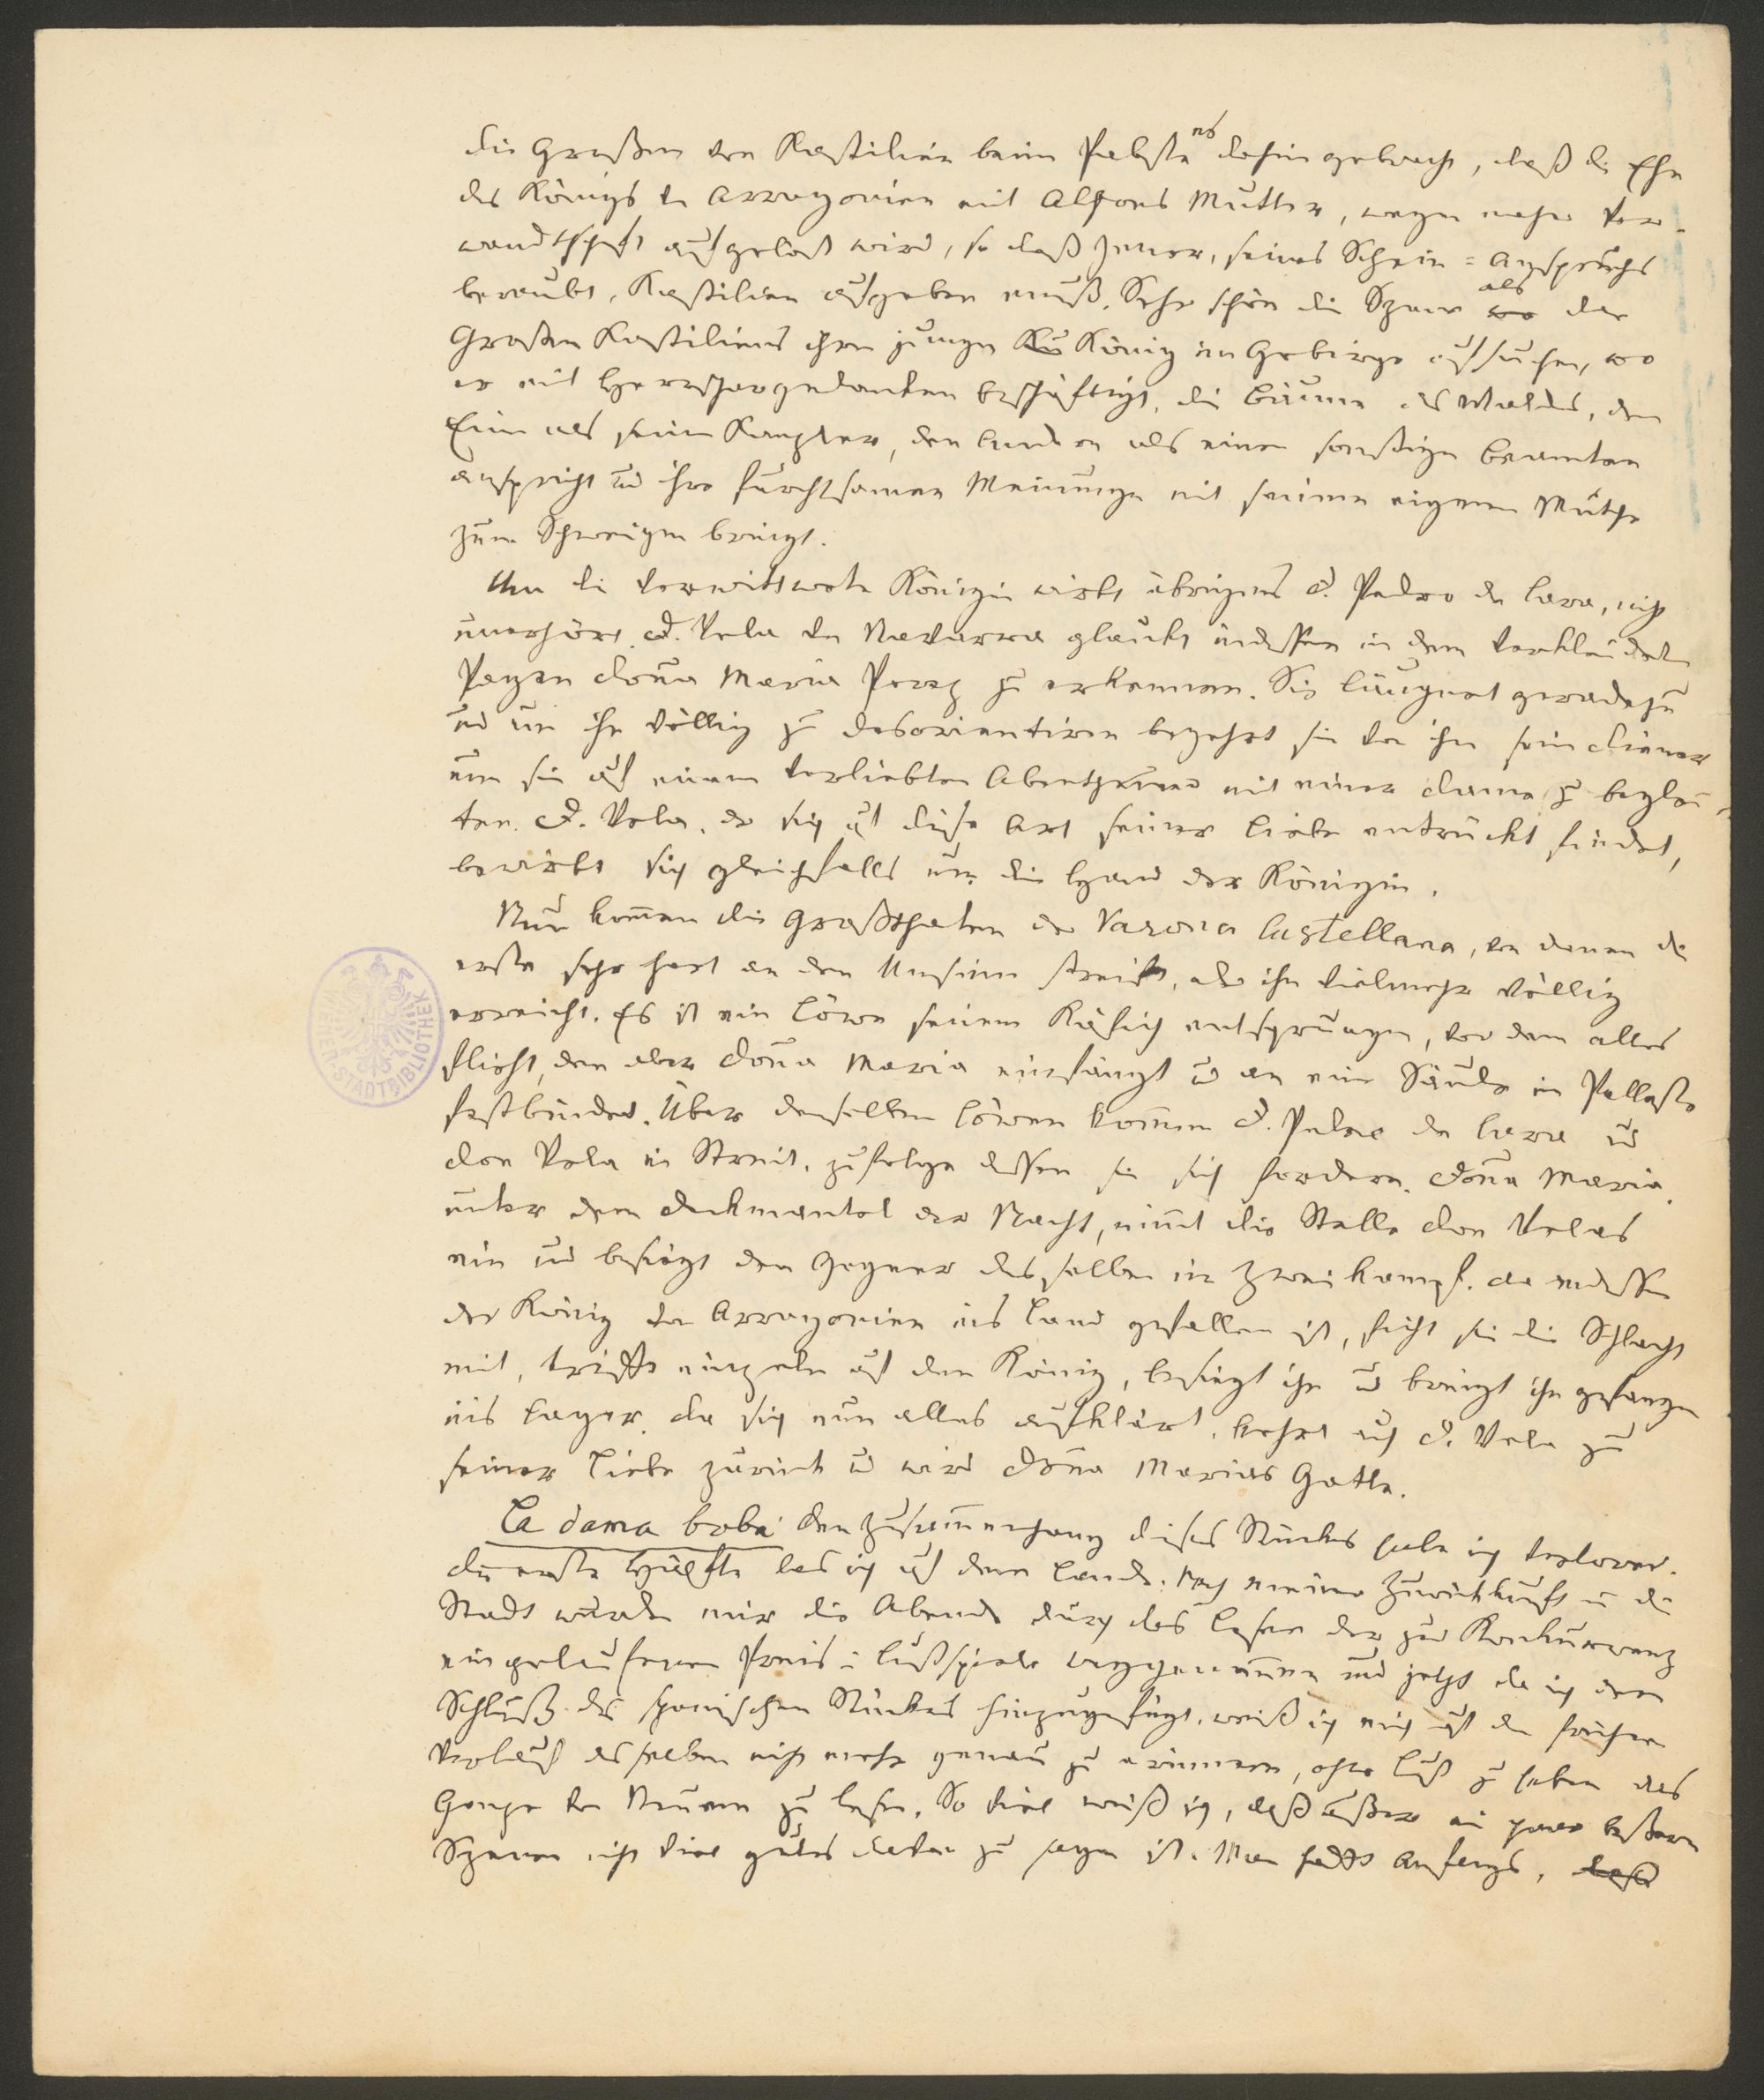 die Großen von Kastilien beim Pabste es dahin gebracht, daß die Ehe
des Königs von Arragonien mit Alfons Mutter, wegen naher Ver-
wandtschaft aufgelöst wird, so daß jener, seines Schein=Anspruchs
beraubt, Kastilien aufgeben muß. Sehr schön die Szene wo als die
Großen Kastiliens ihren jungen Kö König im Gebirge aufsuchen, wo
er mit Herrschergedanken beschäftigt, die Bäume des Waldes, den
Einen als seinen Kanzler, den Andern als einen sonstigen Beamten
anspricht und ihre furchtsamen Meinungen mit seinem eigenen Muthe
zum Schweigen bringt.
Um die verwittwete Königin wirbt übrigens D. Pedro de Lara, nicht
unerhört. D. Vela von Navarra glaubt indessen in dem verkleideten
Pagen Doña Maria Perez zu erkennen. Sie läugnet geradezu
und um ihn völlig zu desorientiren begehrt sie von ihm sein Diener
um sie auf einem verliebten Abentheuer mit einer Dame zu beglei-
ten. D. Vela, der sich auf diese Art seiner Liebe entrückt findet,
bewirbt sich gleichfalls um die Hand der Königin.
Nun kommen die Großthaten der Varona Castellana, von denen die
erste sehr hart an den Unsinn streift, oder ihn vielmehr völlig
erreicht. Es ist ein Löwe seinem Käfich entsprungen, vor dem alles
flieht, den aber Doña Maria einfängt und an eine Säule im Pallaste
festbindet. Über denselben Löwen kommen D. Pedro de Lara und
Don Vela in Streit, zufolge dessen sie sich fordern. Doña Maria,
unter dem Deckmantel der Nacht, nimmt die Stelle Don Velas
ein und besiegt den Gegner desselben im Zweikampf. Da indessen
der König von Arragonien ins Land gefallen ist, ficht sie die Schlacht
mit, trifft einzeln auf den König, besiegt ihn und bringt ihn gefangen
ins Lager. Da sich nun alles aufklärt, kehrt auch D. Vela zu
seiner Liebe zurück und wird Doña Marias Gatte.
La dama boba Den Zusammenhang dieses Stückes habe ich verloren.
Die erste Hälfte las ich auf dem Lande. Nach meiner Zurückkunft in die
Stadt wurden mir die Abende durch das Lesen der zur Konkurrenz
eingelaufenen Preis=Lustspiele weggenommen und jetzt da ich den
Schluß des spanischen Stückes hinzugefügt, weiß ich mich auf den frühern
Verlauf desselben nicht mehr genau zu erinnern, ohne Lust zu haben das
Ganze von Neuem zu lesen. So viel weiß ich, daß außer ein paar bessern
Szenen nicht viel gutes davon zu sagen ist. Man hätte Anfangs, daß
WIENER-STADTBIBLIOTHEK